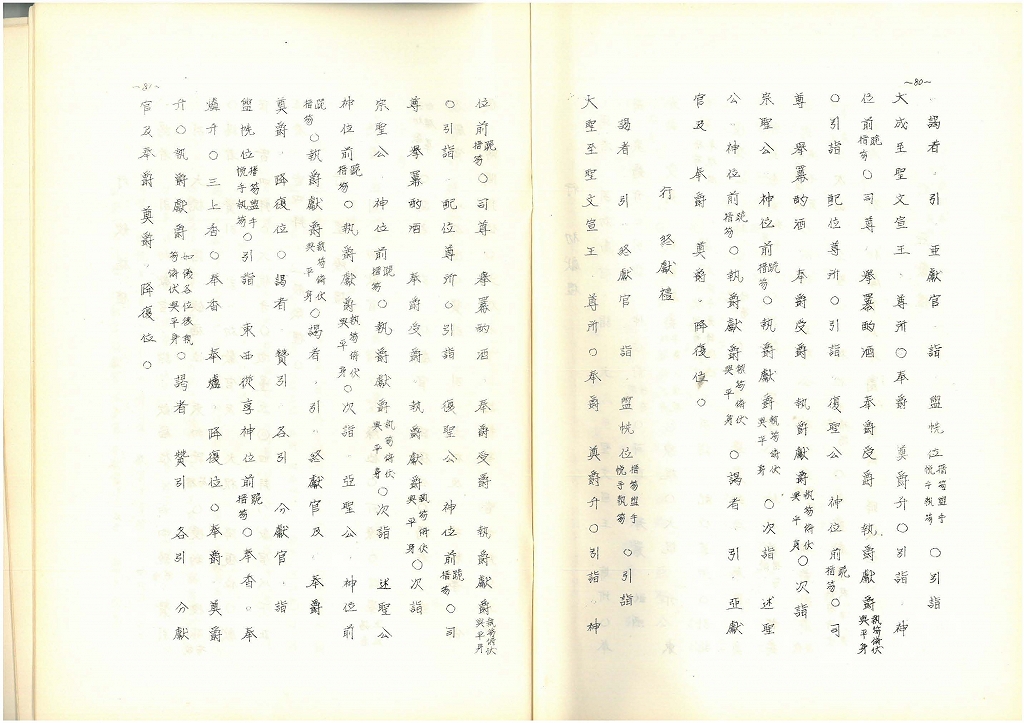 ~80~
謁者 引 亞獻官 詣 盥帨位搢笏盥手帨手執笏 ○引詣
大成至聖文宣王 尊所○奉爵 奠爵升○引詣 神
位前跪搢笏○司尊 擧羃酌酒 奉爵受爵 執爵獻爵執笏俯伏興平身
○引詣 配位尊所○引詣 復聖公 神位前跪搢笏○司
尊 擧羃酌酒 奉爵受爵 執爵獻爵執笏俯伏興平身○次詣
宗聖公 神位前跪搢笏○執爵獻爵執笏俯伏興平身 ○次詣 述聖
公 神位前跪搢笏○執爵獻爵執笏俯伏興平身○謁者 引 亞獻
官及 奉爵 奠爵 降復位○
行 終獻禮
謁者 引 終獻官 詣 盥帨位搢笏盥手帨手執笏 ○引詣
大聖至聖文宣王 尊所○奉爵 奠爵升○引詣 神
~81~
位前跪搢笏○司尊 擧羃酌酒 奉爵受爵 執爵獻爵執笏俯伏興平身
○引詣 配位尊所○引詣 復聖公 神位前跪搢笏○司
尊 擧羃酌酒 奉爵受爵 執爵獻爵執笏俯伏興平身○次詣
宗聖公 神位前跪搢笏○執爵獻爵執笏俯伏興平身○次詣 述聖公
神位前跪搢笏○執爵獻爵執笏俯伏興平身○次詣 亞聖公 神位前
跪搢笏○執爵獻爵執笏俯伏興平身○謁者 引 終獻官及 奉爵
奠爵 降復位○謁者 贊引 各引 分獻官 詣
盥帨位搢笏盥手帨手執笏○引詣 東西從享神位前跪搢笏○奉香 奉
爐升○三上香○奉香 奉爐 降復位○奉爵 奠爵
升○執爵獻爵如儀各位後執笏俯伏興平身○謁者 贊引 各引 分獻
官及奉爵 奠爵 降復位○